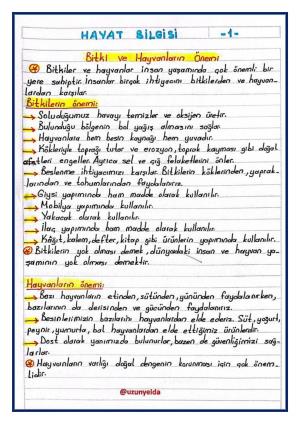 HAYAT BİLGİSİ -1-
Bitki ve Hayvanların Önemi
Bitkiler ve hayvanlar insan yaşamında çok önemli bir
yere sahiptir. İnsanlar birçok ihtiyacını bitkilerden ve hayvan-
lardan karşılar.
Bitkilerin önemi:
Soluduğumuz havayı temizler ve oksijen üretir.
Bulunduğu bölgenin bol yağış almasını sağlar.
Hayvanların hem besin kaynağı hem yuvadır.
Kökleriyle toprağı tutar ve erozyon, toprak kayması gibi doğal
afetleri engeller. Ayrıca sel ve çığ felaketlerini önler.
Beslenme ihtiyacımızı karşılar. Bitkilerin köklerinden, yaprak-
larından ve tohumlarından faydalanırız.
Giysi yapımında ham madde olarak kullanılır.
Mobilya yapımında kullanılır.
Yakacak olarak kullanılır.
İlaç yapımında ham madde olarak kullanılır.
Kâğıt, kalem, defter, kitap gibi ürünlerin yapımında kullanılır.
Bitkilerin yok olması demek, dünyadaki insan ve hayvan ya-
şamının yok olması demektir.
Hayvanların önemi:
Bazı hayvanların etinden, sütünden, yününden faydalanırken,
bazılarının da derisinden ve gücünden faydalanırız.
Besinlerimizin bazılarını hayvanlardan elde ederiz. Süt, yoğurt,
peynir, yumurta, bal hayvanlardan elde ettiğimiz ürünlerdir.
Dost olarak yanımızda bulunurlar, bazen de güvenliğimizi sağ-
larlar.
Hayvanların varlığı doğal dengenin korunması için çok önem-
lidir.
@uzunyelda